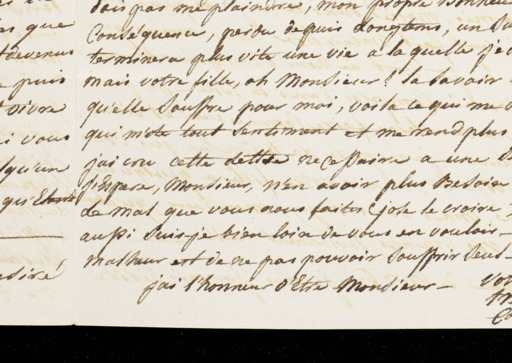 que
devenus
puis
vivre
vous
qu'un
qui
dois pas me plaindre, mon propre
Conséquence, perdu depuis longtems, un
terminera plus vite une vie a laquelle j'ai
mais votre fille, ah Monsieur! la savoir
qu'elle Souffre pour moi, voila ce qui me
qui m'ote tout Sentiment et me rend plus
j'ai cru cette necessaire a une
j'Espere, Monsieur, n'en avoir plus Besoin
de mal que vous nous faites (j'ose le croire)
aussi Suis-je bien loin de vous en vouloir
malheur est de ne pas pouvoir Souffrir Seul
j'ai l'honneur d'Etre Monsieur